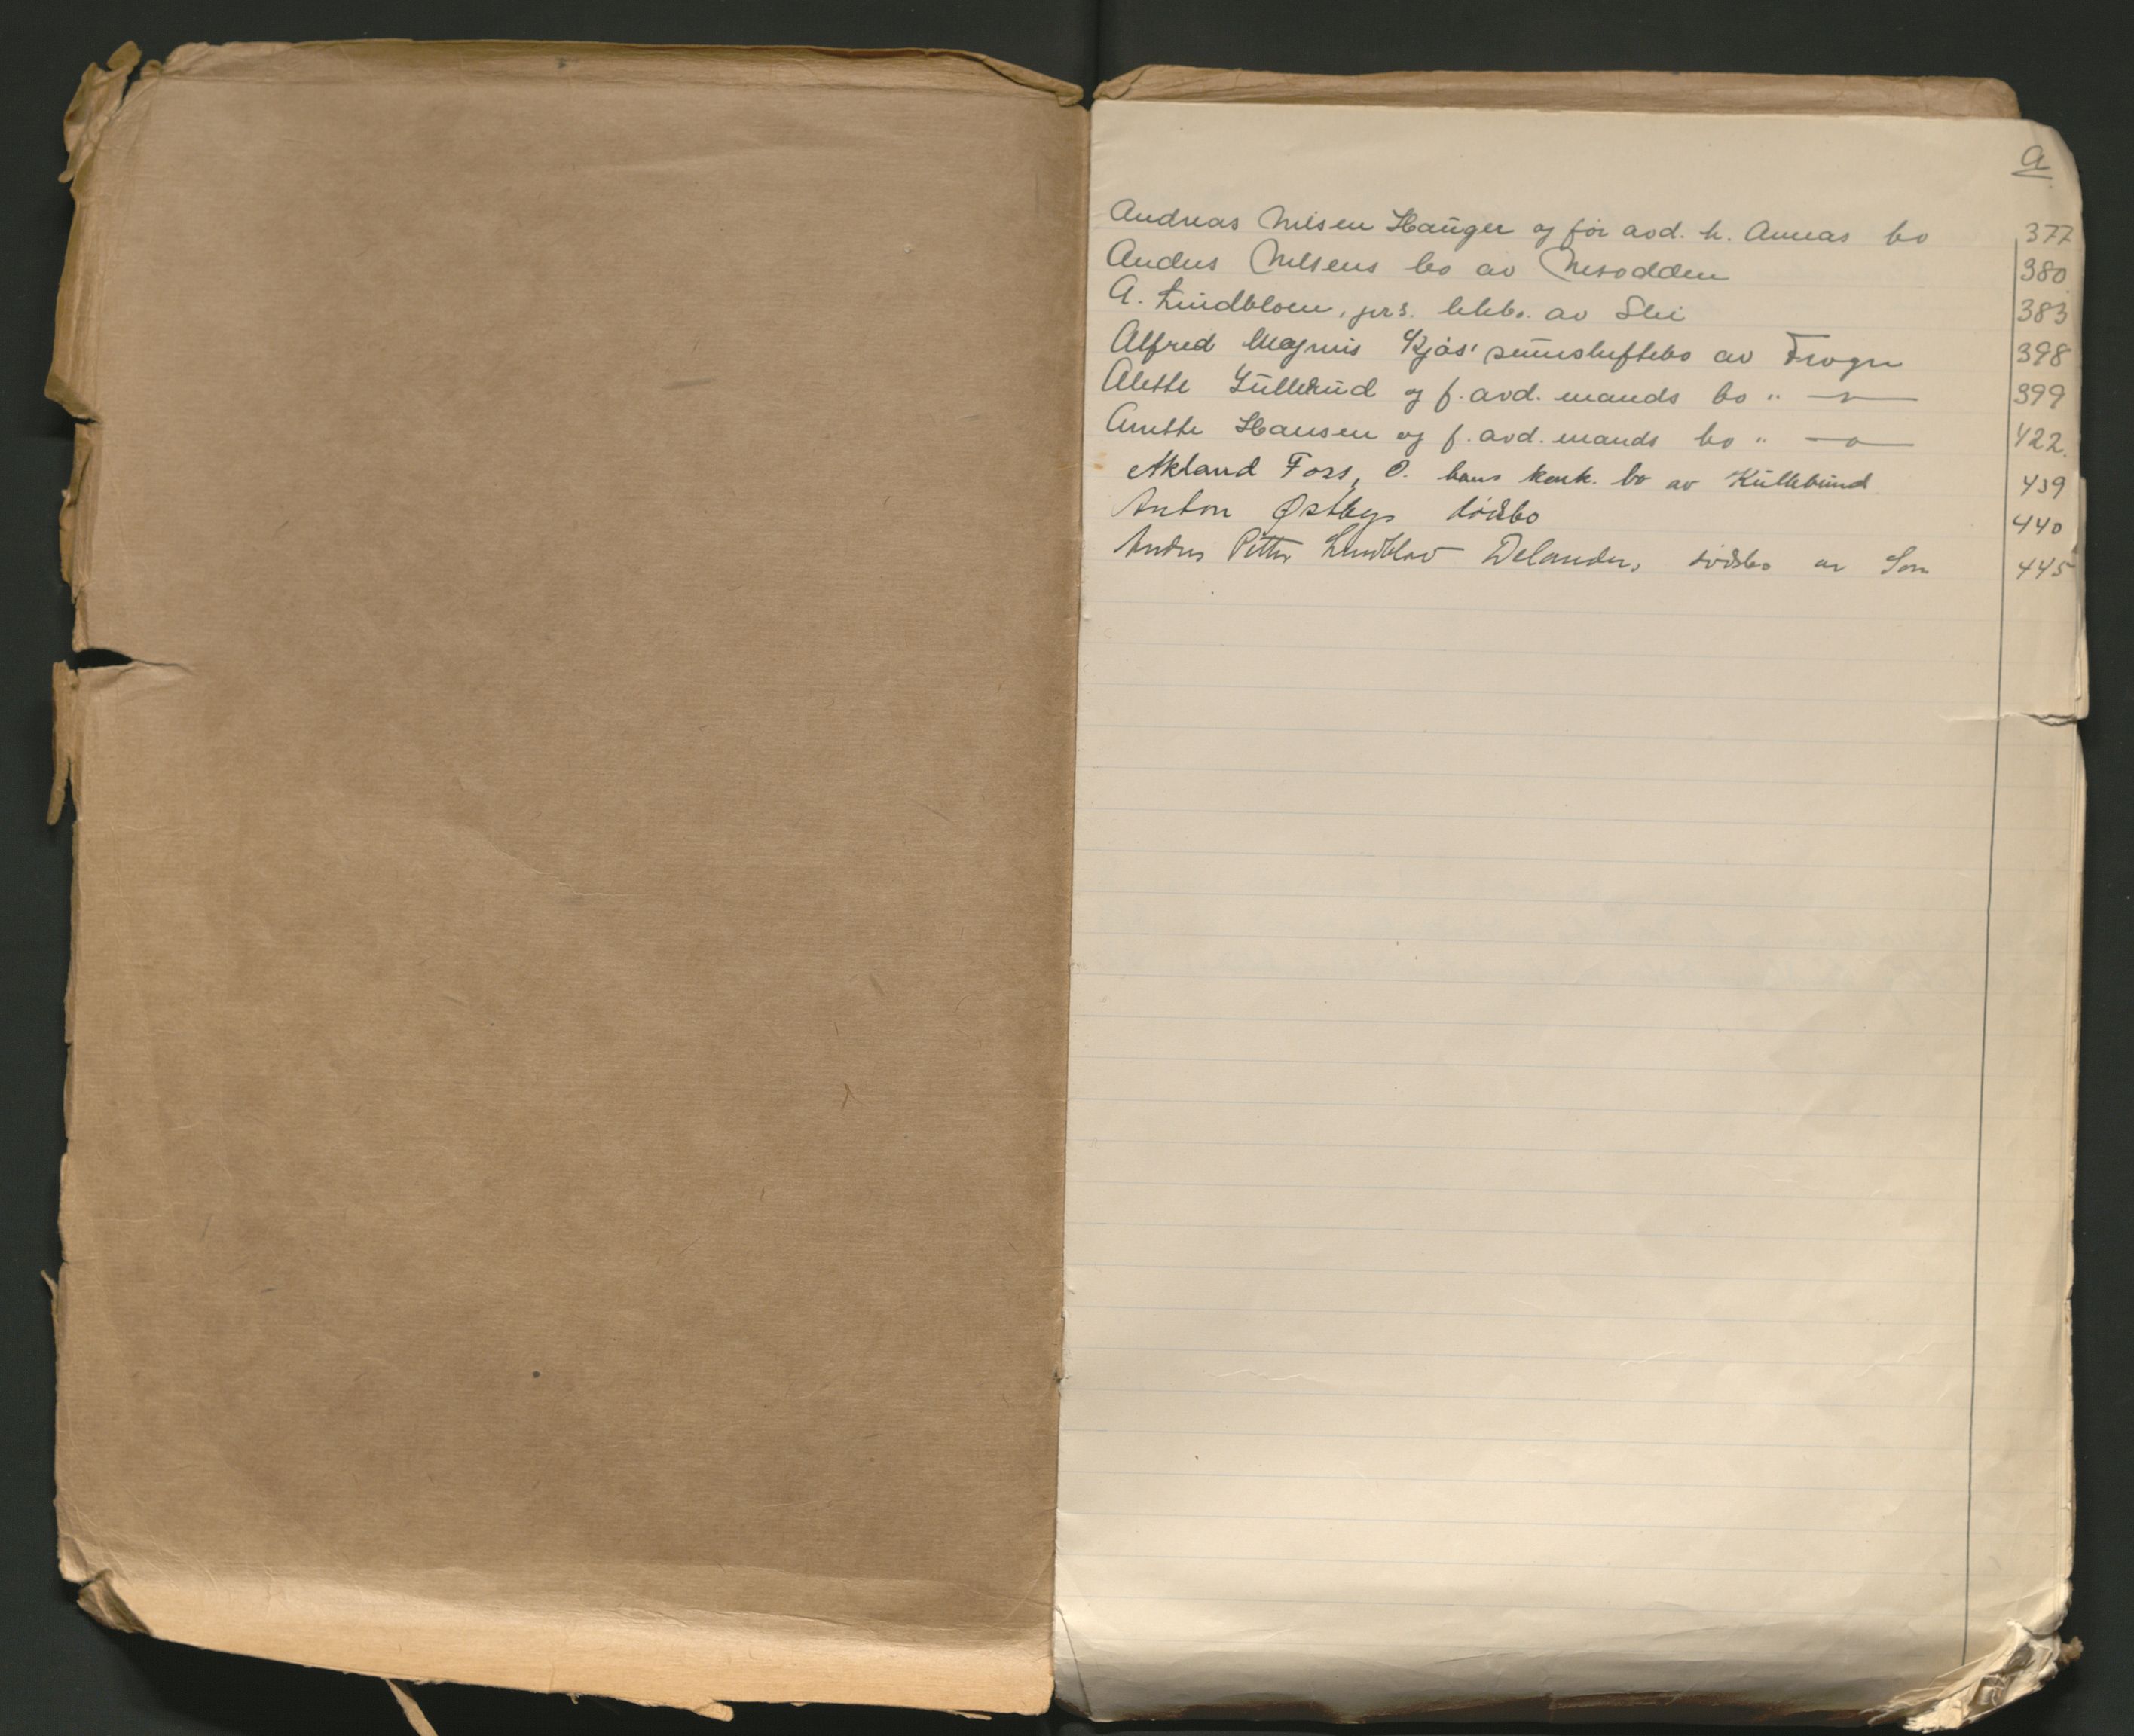 A
Andreas Nilsen Hauger og før avd. h. Annas bo 377
Anders Nilsens bo av Nesodden 380
A. Lindblom, jrs. av Ski 383
Alfred Magnus Kjøs' av Frogn 398
Alette Lüllerud og f. avd. mands bo " —"— 399
Anette Hansen og f. avd. mands bo " —"— 422
Akland Foss, O. hans konk. bo av Küllebund 439
Anton Østbys dødsbo 440
Anders Petter Lundblad Delander, dødsbo av Son 445